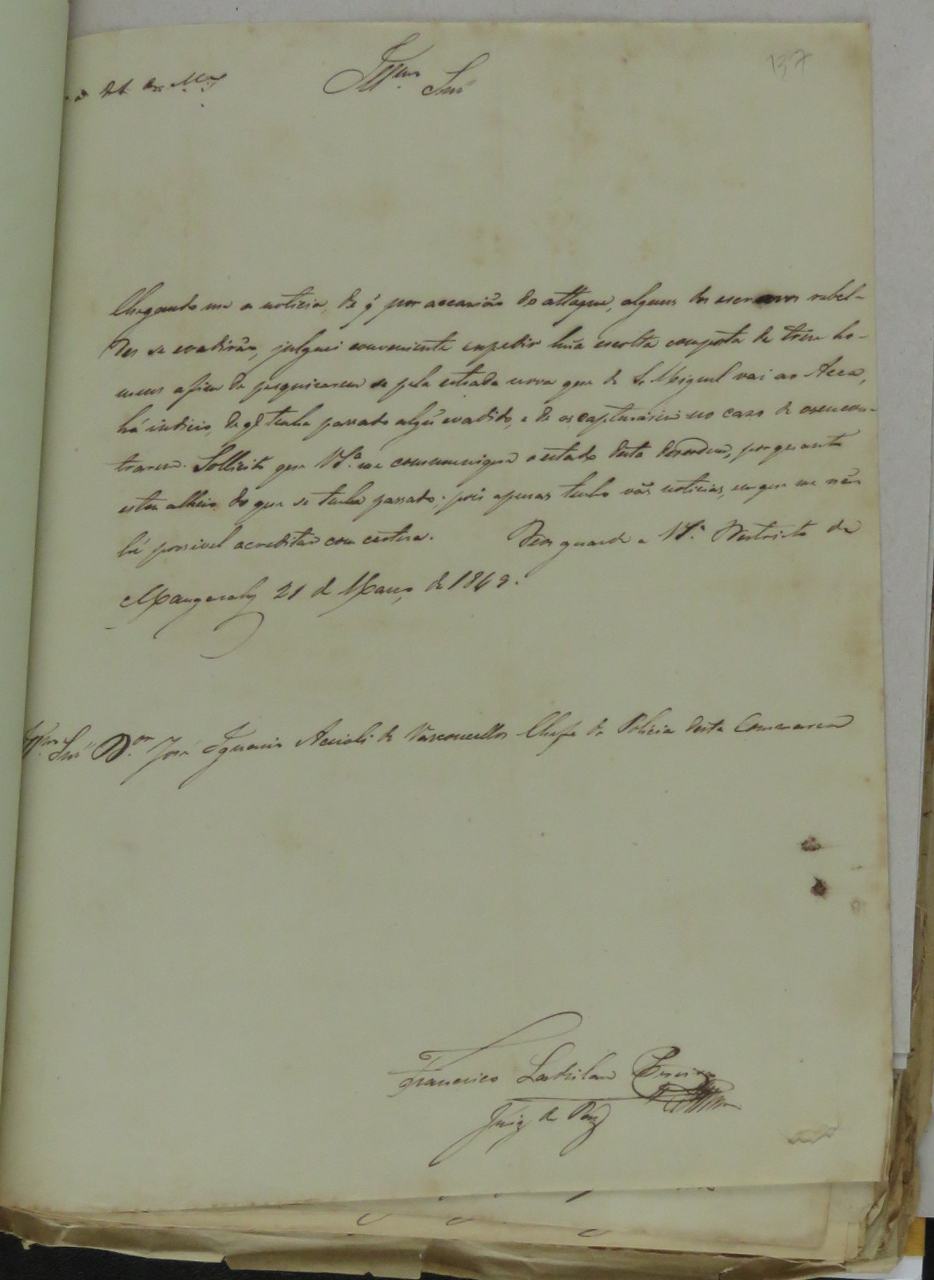 137
Illmo. Snr.
Chegando me a noticia, de q por occazião do attaque, alguns dos escravos rebel-
des se evadirão, julguei conveniente expedir huã escolta composta de trêse ho-
mens afim de pesquizarem se pela estrada nova que de S. Miguel vai ao
há indicio, de q tenha passado algũ evadido, e de os capturarem no cazo de os encon-
trarem. Sollicito que V.Sa. me communique o estado desta desordem, porquanto
estou alheio do que se tenha passado: pois apenas tenho vãs noticias, em que me não
hé possivel acreditar com certeza. Deos guarde a V.Sa. Destricto de
21 de Março de 1849.
Illmo. Snr. Dor. José Ignacio Acciolli de Vasconcellos Chefe de Policia desta Commarca
Francisco Ladislau Pereira
Juiz de Paz